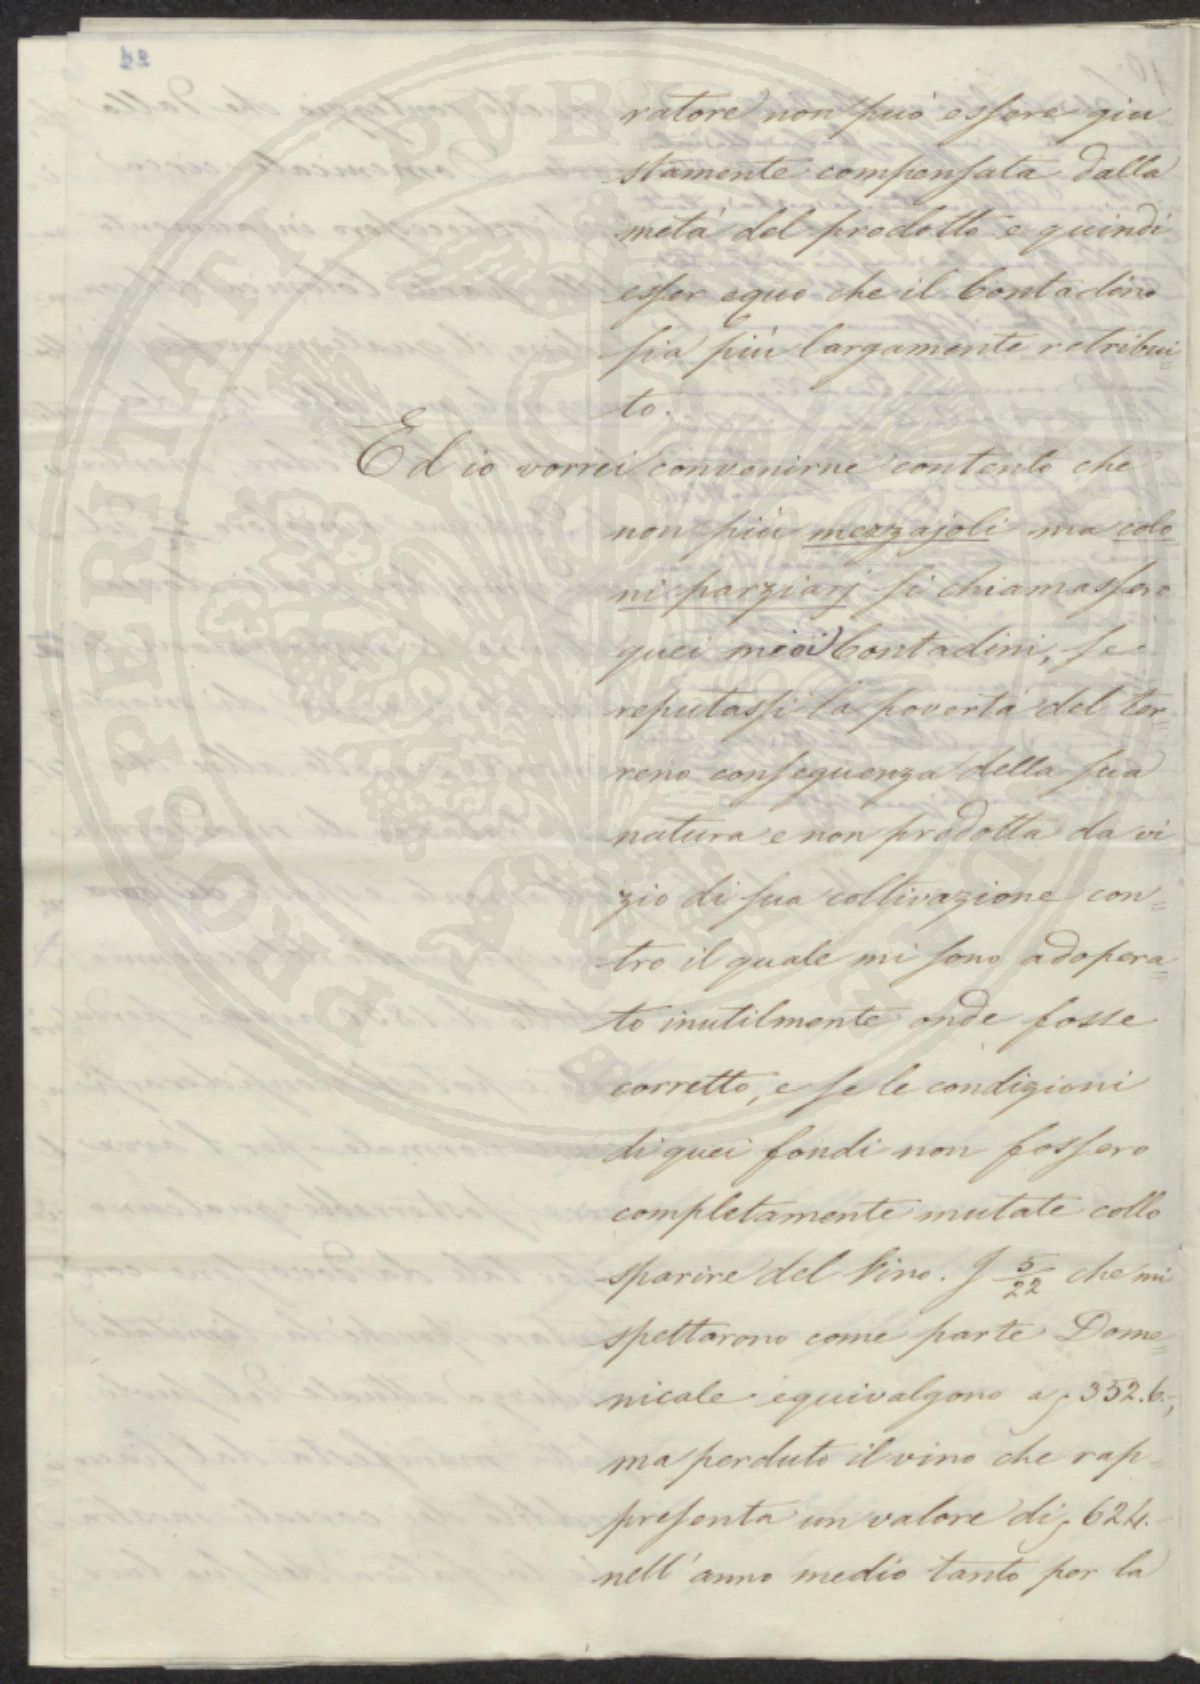 ratore non può essere giu
stamente compensata dalla
metà del prodotto e quindi
esser equo che il Contadino
sia più largamente retribui=
to.
Ed io vorrei convenirne contento che
non più mezzajoli ma colo
ni parziarj si chiamasser
quei miei Contadini, se
reputassi la povertà del ter=
reno conseguenza della sua
natura e non prodotta da vi
zio di sua coltivazione con=
tro il quale mi sono adopera=
to inutilmente onde fosse
corretto, e se le condizioni
di quei fondi non fossero
completamente mutate collo
sparire del Vino. I 5/22 che mi
spettarono come parte Dome=
nicale equivalgono a 352.6.,
ma perduto il vino che rap=
presenta un valore di 624.
nell'anno medio tanto per la
PROSPERITATI PUBLICAE